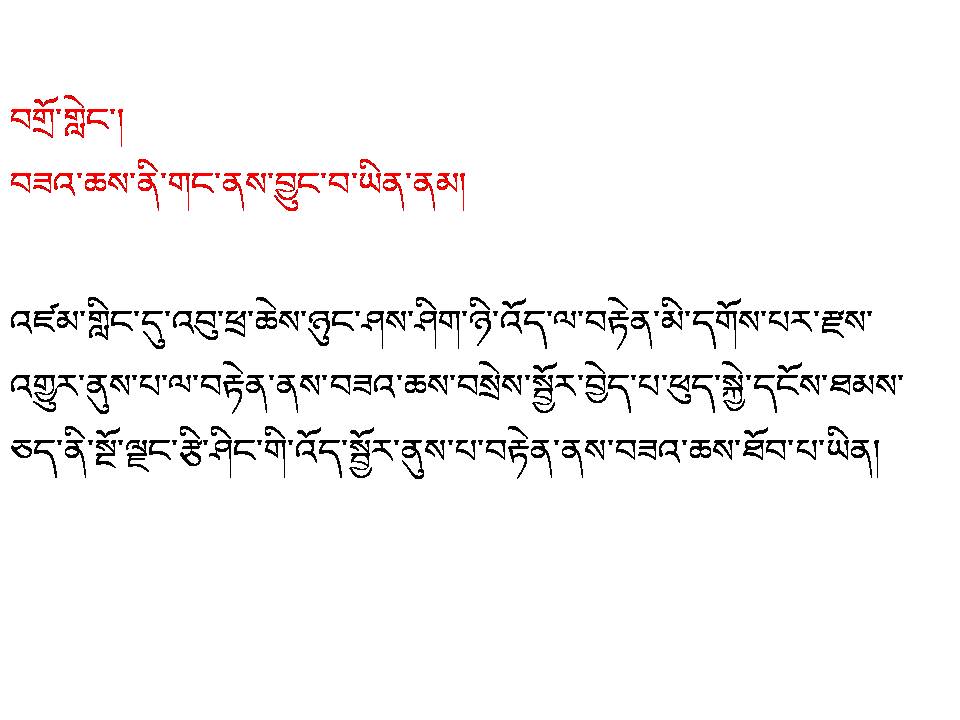 བགྲོ་གླེང་།
བཟའ་ཆས་ནི་གང་ནས་བྱུང་བ་ཡིན་ནམ།
འཛམ་གླིང་དུ་འབུ་ཕྲ་ཆེས་ཉུང་ཤས་ཤིག་ཉི་འོད་ལ་བརྟེན་མི་དགོས་པར་རྫས་
འགྱུར་ནུས་པ་ལ་བརྟེན་ནས་བཟའ་ཆས་བསྲེས་སྦྱོར་བྱེད་པ་ཕུད་སྐྱེ་དངོས་ཐམས་
ཅད་ནི་སྔོ་ལྗང་རྩི་ཤིང་གི་འོད་སྦྱོར་ནུས་པ་བརྟེན་ནས་བཟའ་ཆས་ཐོབ་པ་ཡིན།